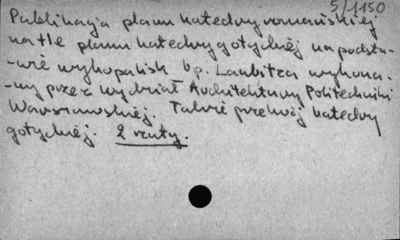 5/1150
Publikacja planu katedry romańskiej
na tle planu katedry gotyckiej na podsta-
-wie wykopalisk bp. Laubitza wykona-
-ny przez wydział Architektury Politechniki
Warszawskiej. Także przekrój katedry
gotyckiej. 2 rzuty.